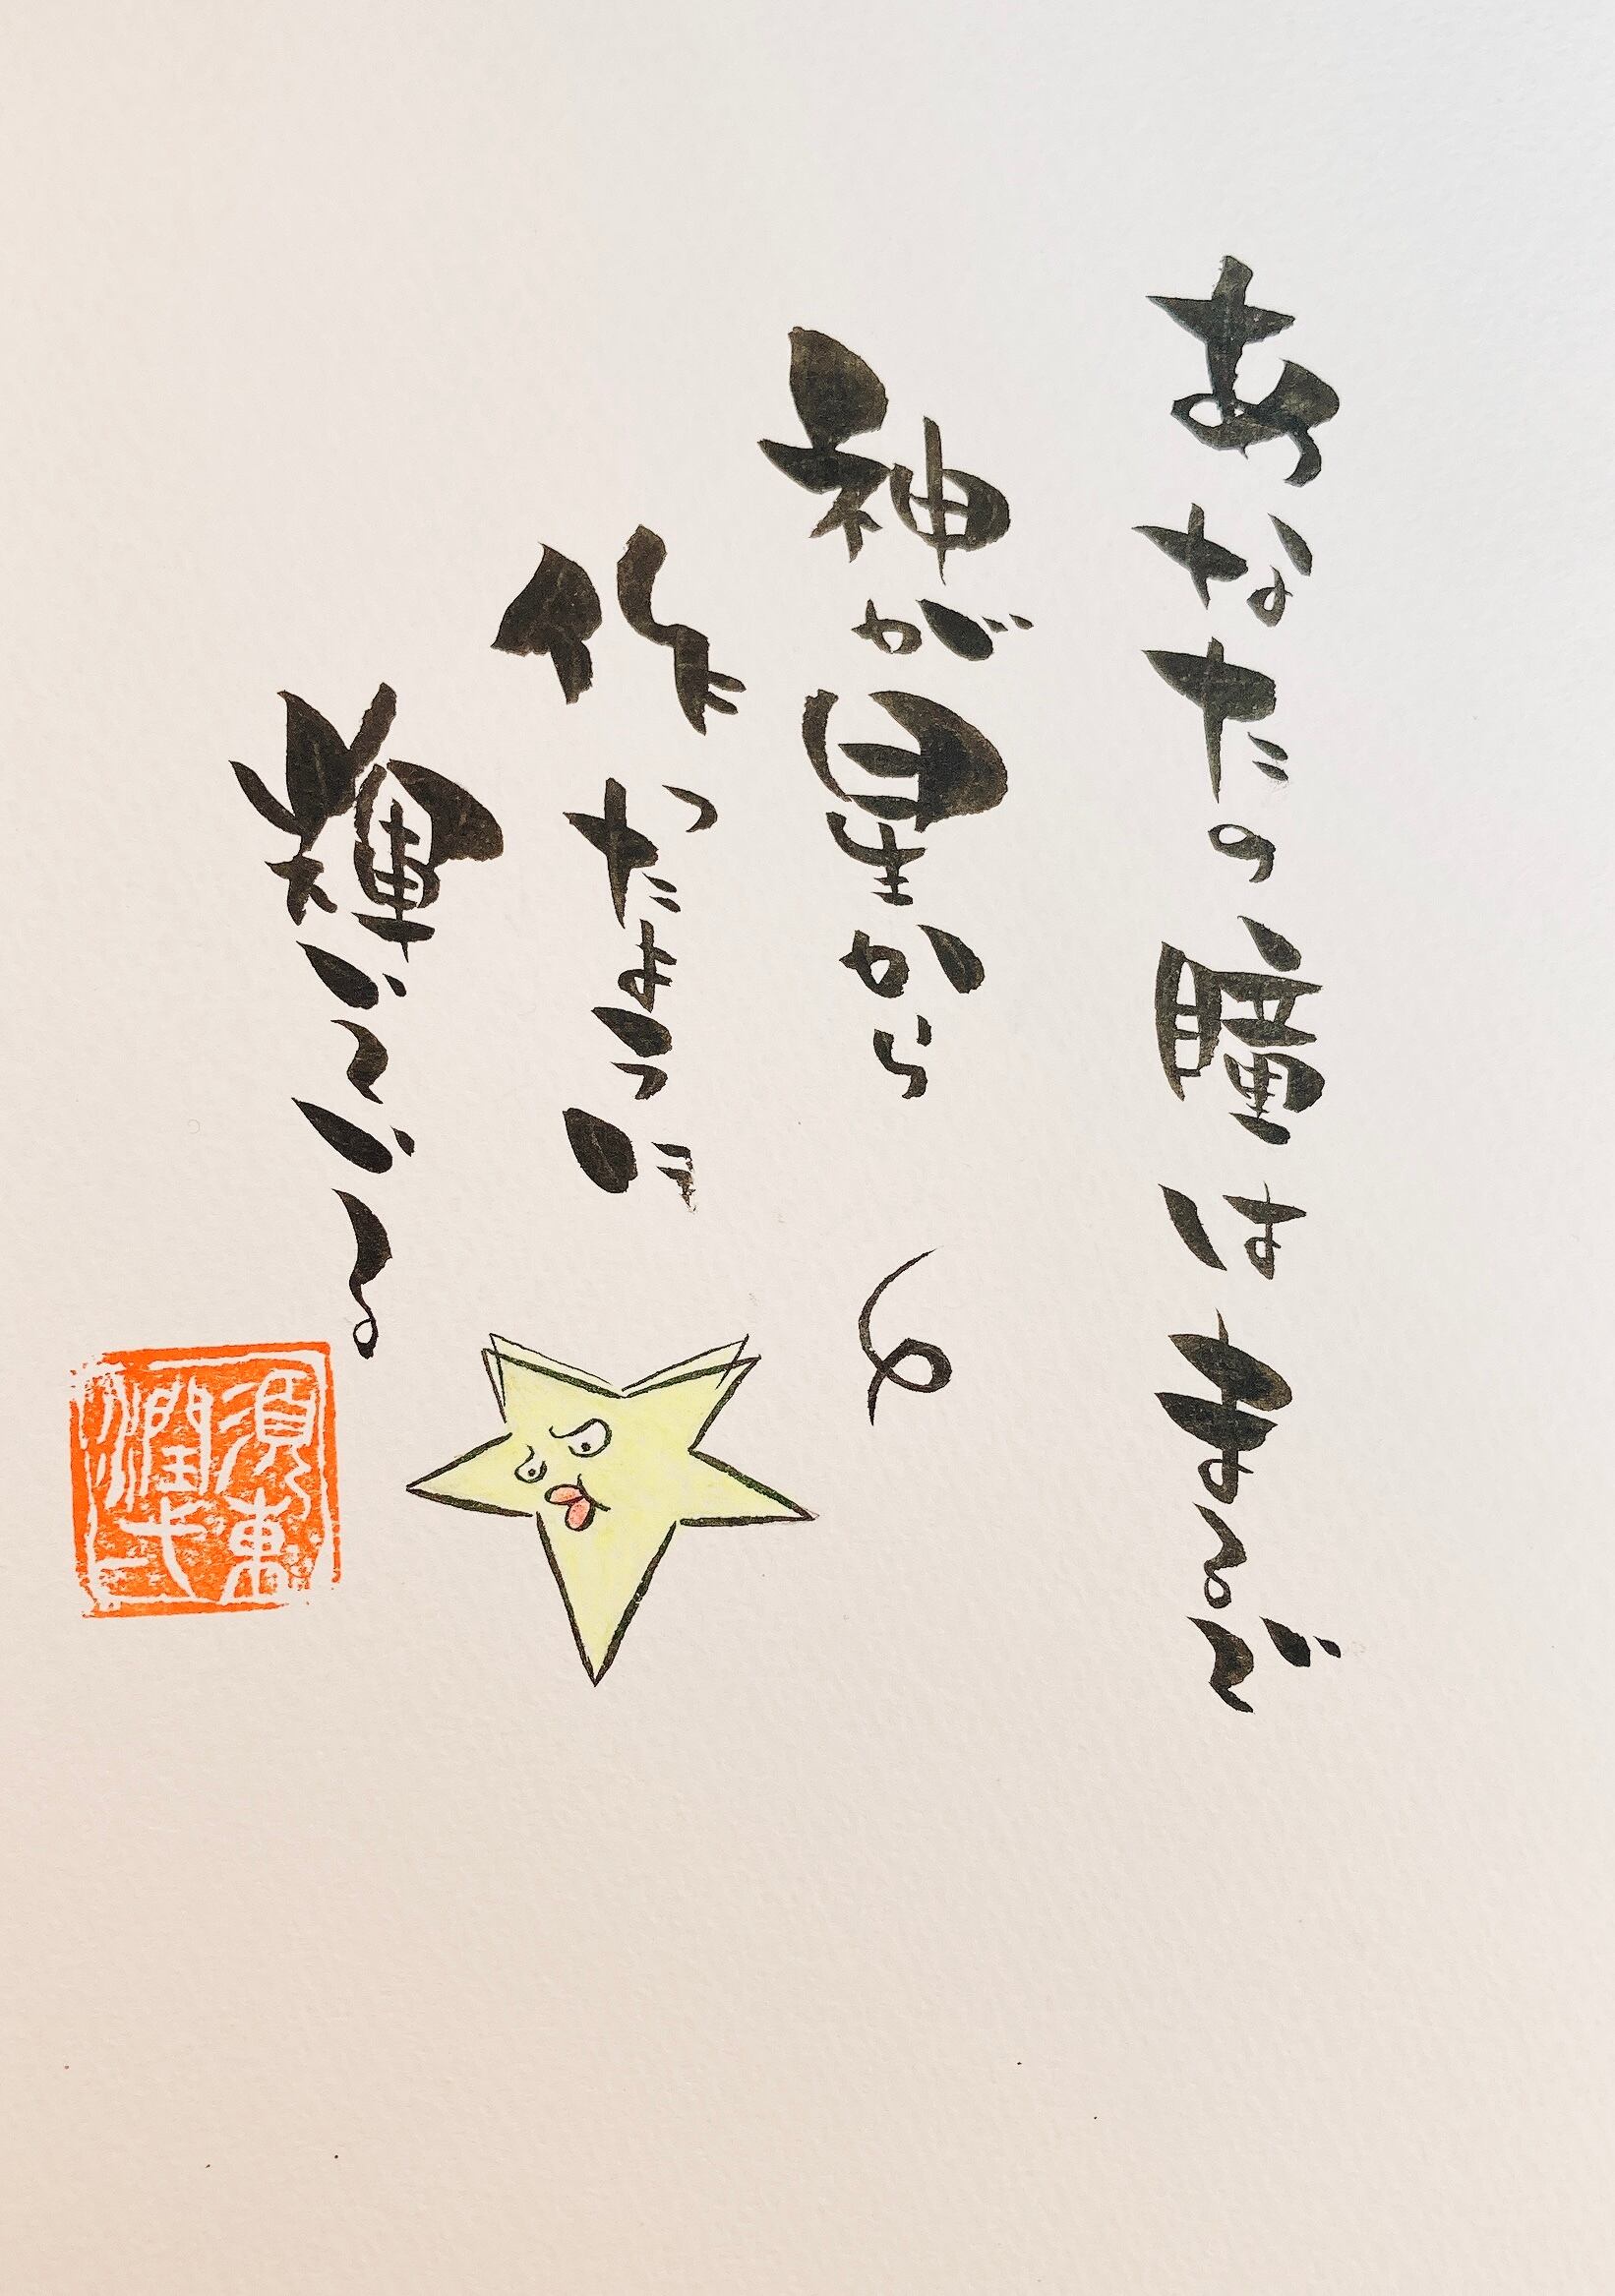 あなたの瞳はまるで
神が星から
作ったように
輝いている
須東
潤